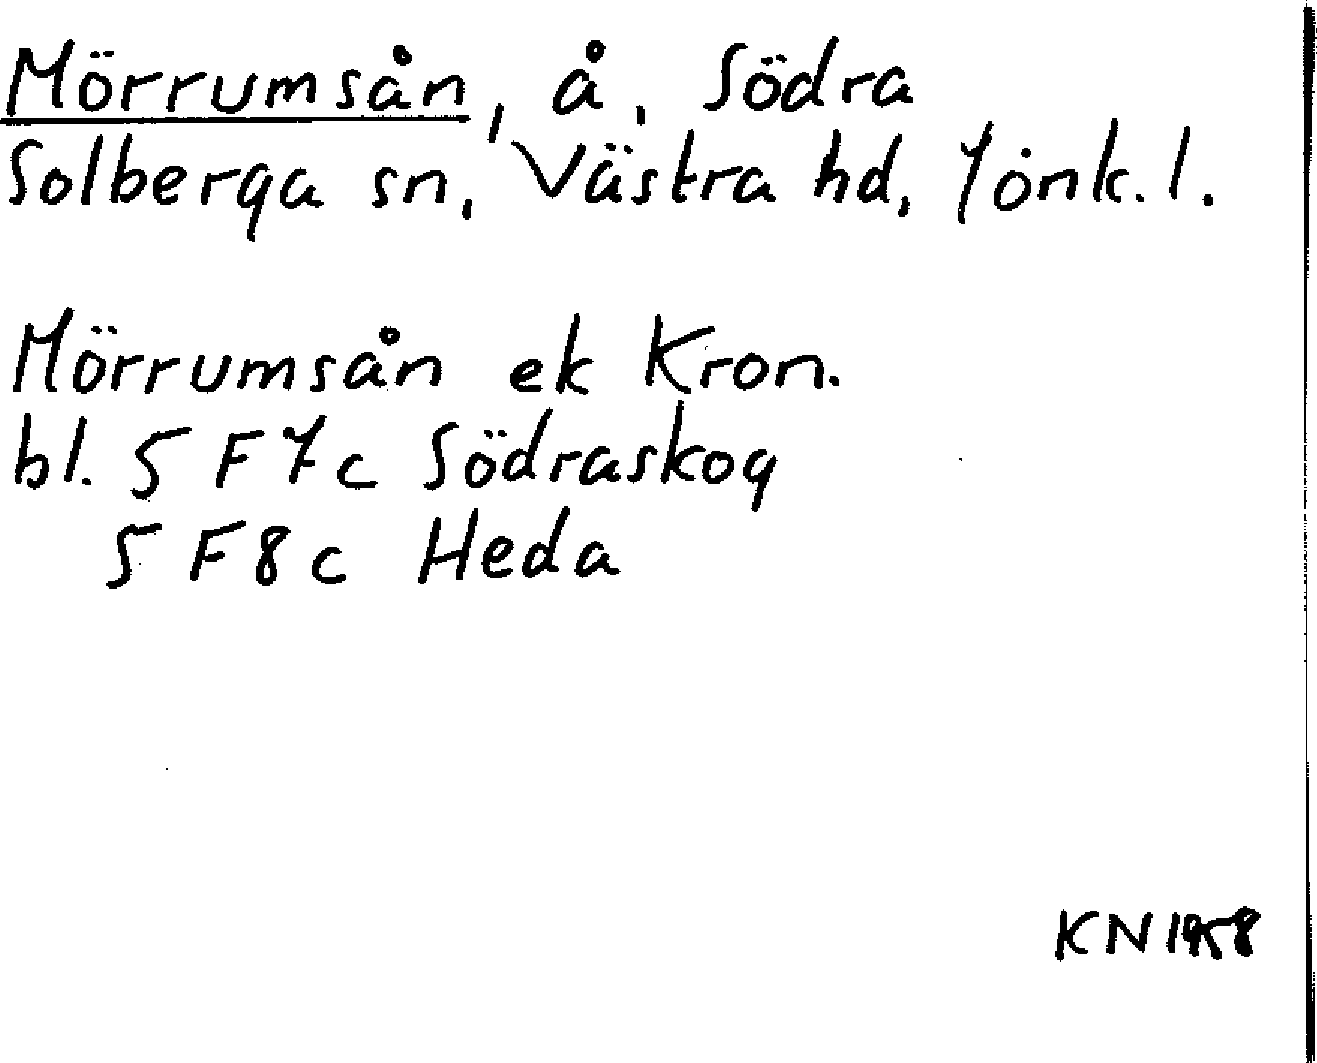 Mörrumsån, å, Södra
Solberga sn, Västra hd, Jönk. l.
Mörrumsån ek Kron.
bl. 5 F 7 c Södraskog
5 F 8 c Heda
KN 1958